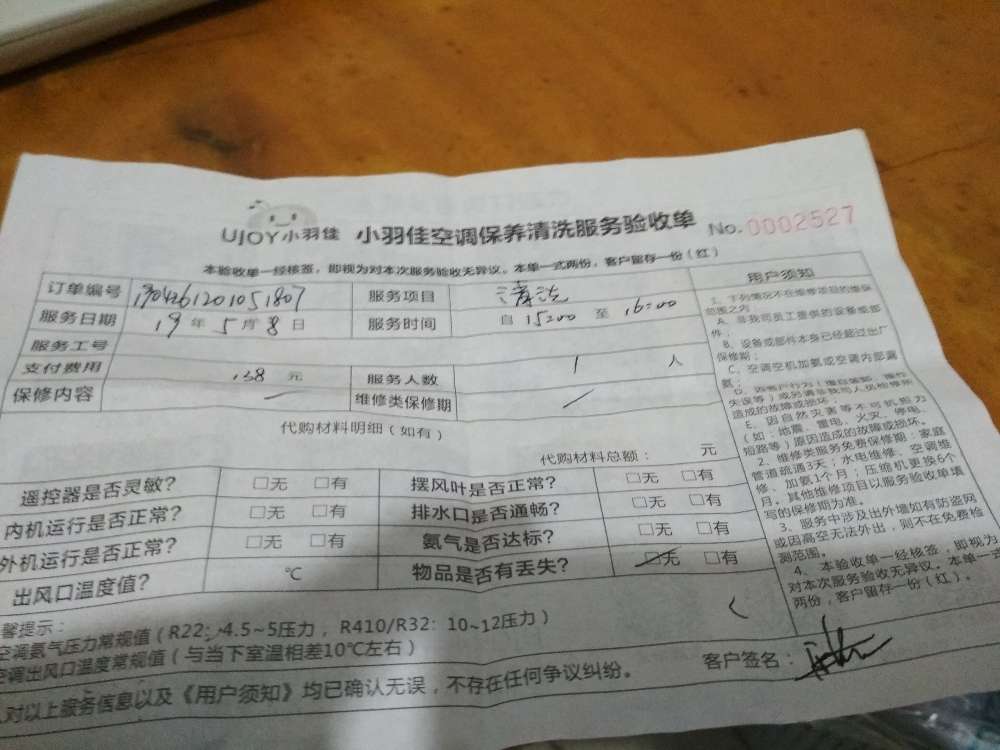 UJOY小羽佳 小羽佳空调保养清洗服务验收单 No.0002527
本验收单一经核签，即视为对本次服务验收无异议。本单一式两份，客户留存一份（红）
订单编号 服务项目 清洗
服务日期 19年5月8日 服务时间 自15:00至16:00
服务工号
支付费用 138元 服务人数 1人
保修内容 / 维修类保修期 /
代购材料明细（如有）
代购材料总额： 元
遥控器是否灵敏？ □无 □有 摆风叶是否正常？ □无 □有
内机运行是否正常？ □无 □有 排水口是否通畅？ □无 □有
外机运行是否正常？ □无 □有 氨气是否达标？ □无 □有
出风口温度值？ ℃ 物品是否有丢失？ □无 □有
馨提示：
空调氨气压力常规值（R22：4.5~5压力，R410/R32：10~12压力）
空调出风口温度常规值（与当下室温相差10℃左右）
人对以上服务信息以及《用户须知》均已确认无误，不存在任何争议纠纷。
客户签名：
用户须知
1、下列情况不在维修项目的维保
范围之内
A、非我司员工提供的设备或部
件；
B、设备或部件本身已经超过出厂
保修期；
C、空调空机加氨或空调内部漏
氨；
失误等）或另请非我司人员检修所
造成的故障或损坏；
E、因自然灾害等不可抗力
（如：地震、雷电、火灾、停电、
短路等）原因造成的故障或损坏。
2、维修类服务免费保修期：家庭
管道疏通3天；水电维修、空调维
修、加氨1个月；压缩机更换6个
月。其他维修项目以服务验收单填
写的保修期为准。
3、服务中涉及出外墙如有防盗网
或因高空无法外出，则不在免费检
测范围。
4、本验收单一经核签，即视为
对本次服务验收无异议。本单一式
两份，客户留存一份（红）。